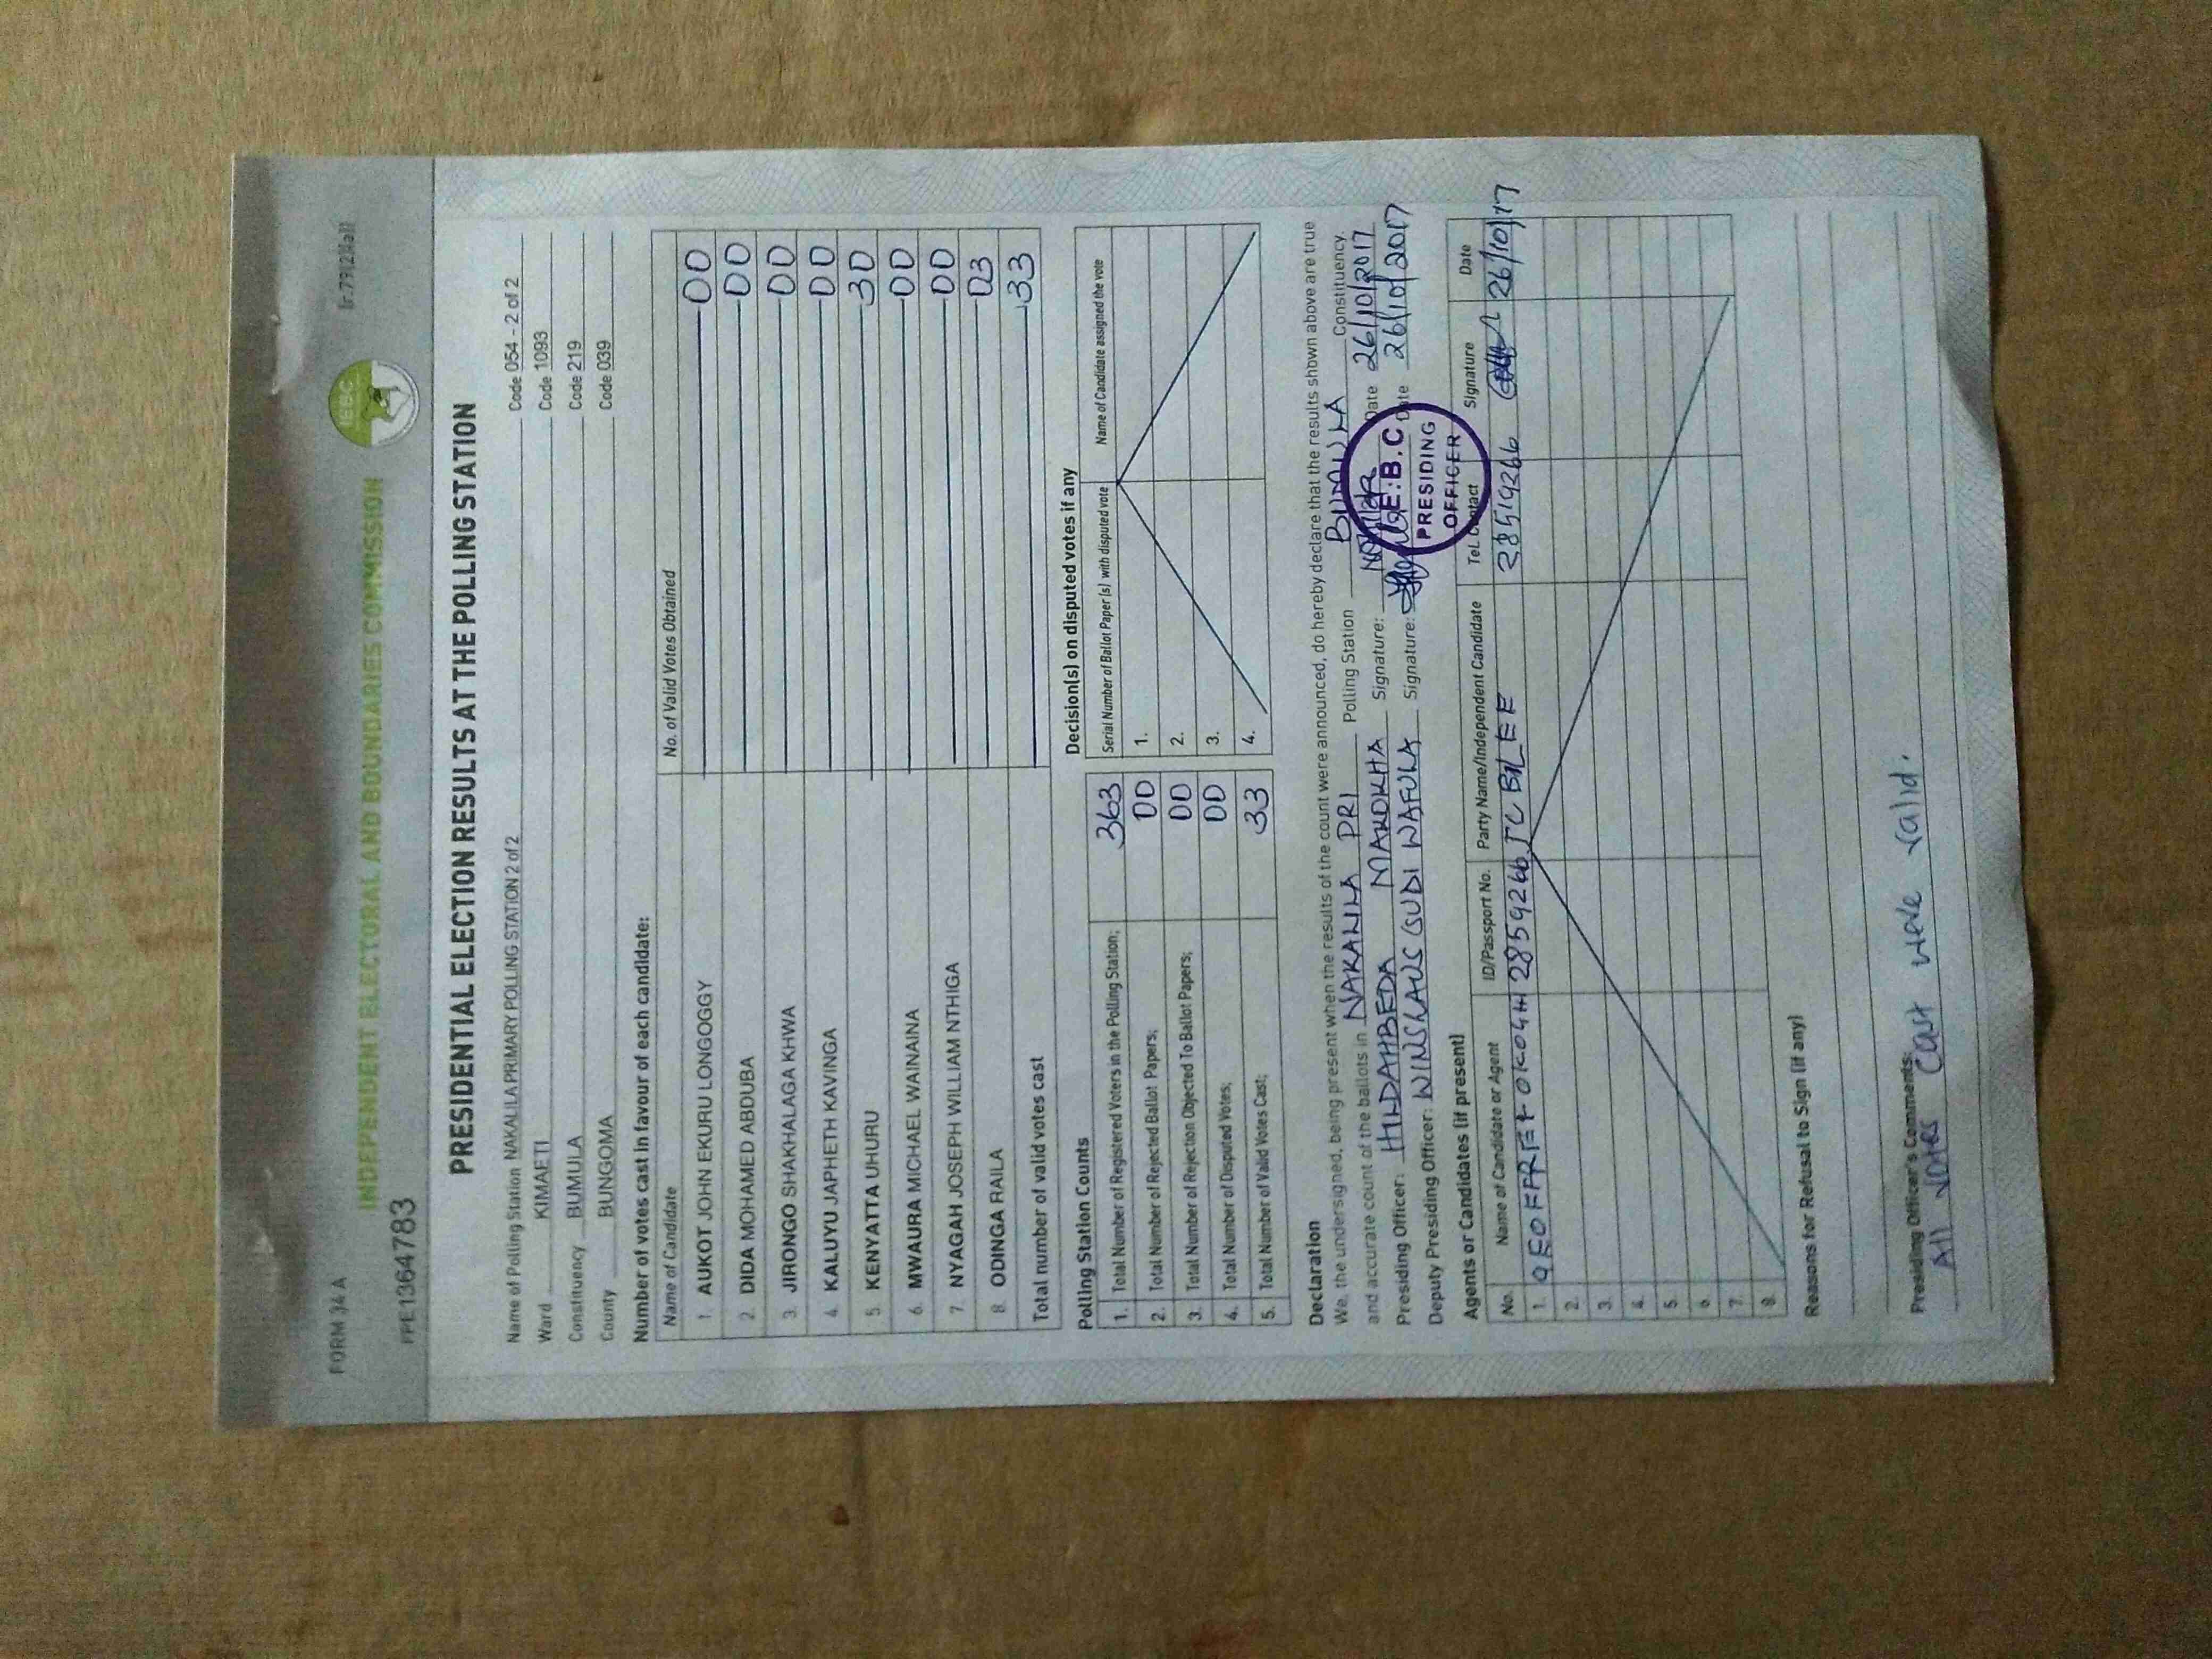 FORM 34 A
INDEPENDENT ELECTORAL AND BOUNDARIES COMMISSION
IEBC
FPE1364783
PRESIDENTIAL ELECTION RESULTS AT THE POLLING STATION
Name of Polling Station NAKALILA PRIMARY POLLING STATION 2 of 2 Code 054 - 2 of 2
Ward KIMAETI Code 1093
Constituency BUMULA Code 219
County BUNGOMA Code 039
Number of votes cast in favour of each candidate:
Name of Candidate No. of Valid Votes Obtained
1 AUKOT JOHN EKURU LONGOGGY 00
2. DIDA MOHAMED ABDUBA 00
3. JIRONGO SHAKHALAGA KHWA 00
4. KALUYU JAPHETH KAVINGA 00
5 KENYATTA UHURU 30
6. MWAURA MICHAEL WAINAINA 00
7. NYAGAH JOSEPH WILLIAM NTHIGA 00
8. ODINGA RAILA 03
Total number of valid votes cast 33
Polling Station Counts
1. Total Number of Registered Voters in the Polling Station; 363
2. Total Number of Rejected Ballot Papers; 00
3. Total Number of Rejection Objected To Ballot Papers; 00
4. Total Number of Disputed Votes; 00
5. Total Number of Valid Votes Cast; 33
Decision(s) on disputed votes if any
Serial Number of Ballot Paper (s) with disputed vote Name of Candidate assigned the vote
1.
2.
3.
4.
Declaration
We, the undersigned, being present when the results of the count were announced, do hereby declare that the results shown above are true
and accurate count of the ballots in NAKALILA PRI Polling Station BUMULA Constituency.
Presiding Officer: HILDAHBEDA MAKOKHA Signature: Date 26/10/2017
Deputy Presiding Officer: WINSLAUS GUDI WAFULA Signature: Date 26/10/2017
I.E.B.C
PRESIDING
OFFICER
Agents or Candidates (if present)
No. Name of Candidate or Agent ID/Passport No. Party Name/Independent Candidate Tel. Contact Signature Date
1. 28859266 26/10/17
2.
3.
4.
5.
6.
7.
8.
Reasons for Refusal to Sign (if any)
Presiding Officer's Comments:
All votes cast were valid.